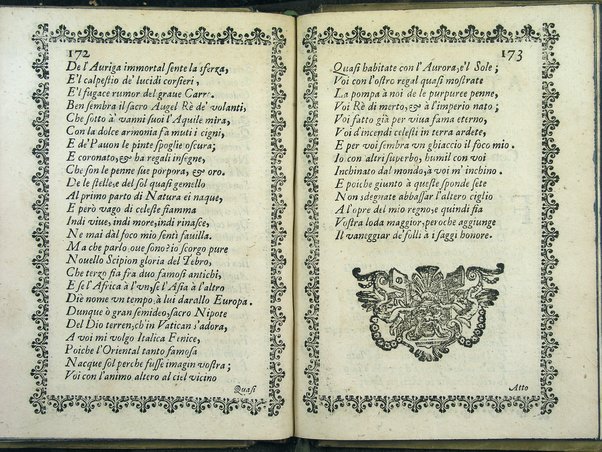 172
De l'Auriga immortal sente la sferza,
E'l calpestio de' lucidi corsieri,
E'l fugace rumor del graue Carro.
Ben sembra il sacro Augel Rè de' volanti,
Che sotto a' vanni suoi l'Aquile mira,
Con la dolce armonia fà muti i cigni,
E de' Pauon le pinte spoglie oscura;
E coronato, & ha regali insegne,
Che son le penne sue porpora, & oro.
De le stelle, e del sol quasi gemello
Al primo parto di Natura ei naque,
E però vago di celeste fiamma
Indi viue, indi more, indi rinasce,
Ne mai dàl foco mio sentì fauilla.
Ma che parlo, oue sono? io scorgo pure
Nouello Scipion gloria del Tebro,
Che terzo fia fra duo famosi antichi,
E se l'Africa à l'vn, se l'Asia à l'altro
Diè nome vn tempo, à lui darallo Europa.
Dunque ò gran semideo, sacro Nipote
Del Dio terren, ch'in Vatican s'adora,
A voi mi volgo Italica Fenice,
Poiche l'Oriental tanto famosa
Nacque sol perche fusse imagin vostra;
Voi con l'animo altero al ciel vicino
Quasi
173
Quasi habitate con l'Aurora, e'l Sole;
Voi con l'ostro regal quasi mostrate
La pompa à noi de le purpuree penne,
Voi Rè di merto, & à l'imperio nato;
Voi fatto già per viua fama eterno,
Voi d'incendi celesti in terra ardete,
E per voi sembra vn ghiaccio il foco mio.
Io con altri superbo, humil con voi
Inchinato dal mondo, à voi m'inchino.
E poiche giunto à queste sponde sete
Non sdegnate abbassar l'altero ciglio
A l'opre del mio regno; e quindi fia
Vostra loda maggior, peroche aggiunge
Il vaneggiar de' folli à i saggi honore.
Atto